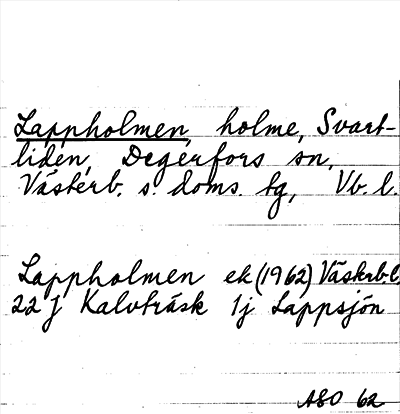 Lappholmen, holme, Svart-
liden, Degerfors sn,
Västerb. s. doms. tg, Vb. l.
Lappholmen ek (1962) Västerb.l.
22 J Kalvträsk 1j Lappsjön
ASO 62